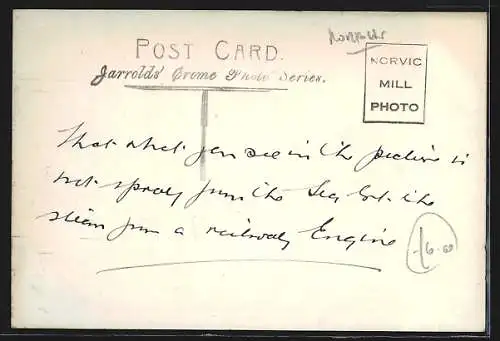 POST CARD.
Jarrolds' Crome Photo Series.
NORVIC
MILL
PHOTO
That what you see in the picture is
not spray from the Sea but the
steam from a railway Engine
6-00